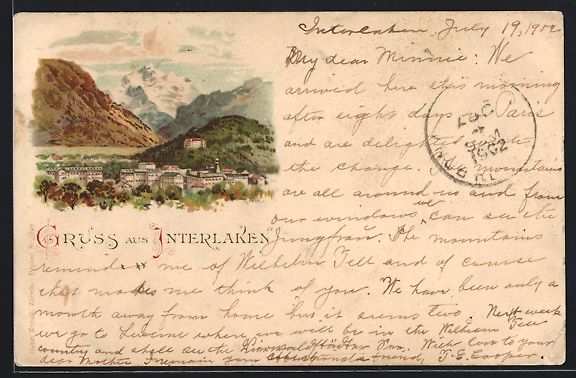 Interlaken, July 19, 1902
My dear Minnie: We
arrived here this morning
after eight days in Paris
and are delighted with
the change. The mountains
are all around us and from
our windows we can see the
Jungfrau. The mountains
remind me of Wilhelm Tell and of course
that makes me think of you. We have been only a
month away from home but it seems two. Next week
we go to Lucerne where we will be in the William Tell
country and shall see the Vierwaldstätter See. With love to your
dear Mother I remain your affectionate friend, T. E. Cooper.
GRUSS AUS INTERLAKEN
1902